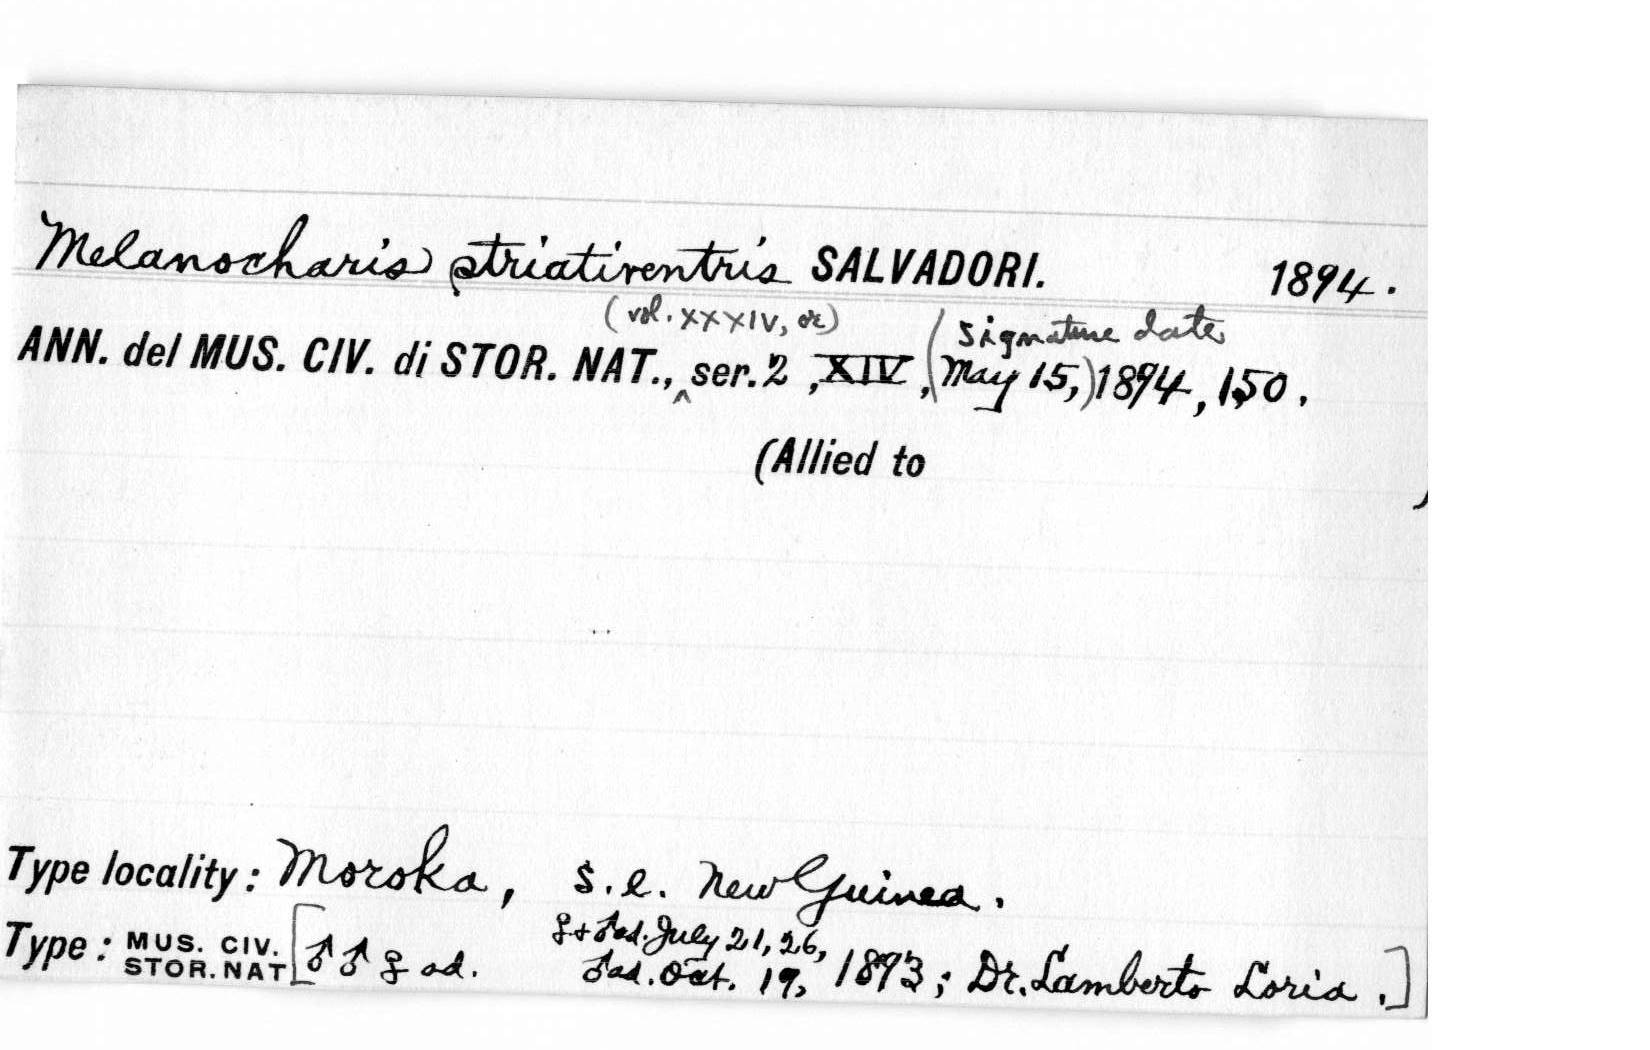 Melanocharis striativentris SALVADORI. 1894.
(vol. XXXIV, or) (signature date
ANN. del MUS. CIV. di STOR. NAT., ^ ser. 2, XIV, May 15,) 1894, 150.
(Allied to )
Type locality: Moroka, s.e. New Guinea.
♀+♂ad. July 21, 26,
Type: MUS. CIV. [♂♂♀ ad. ♂ad. Oct. 19, 1893; Dr. Lamberto Loria.]
STOR. NAT